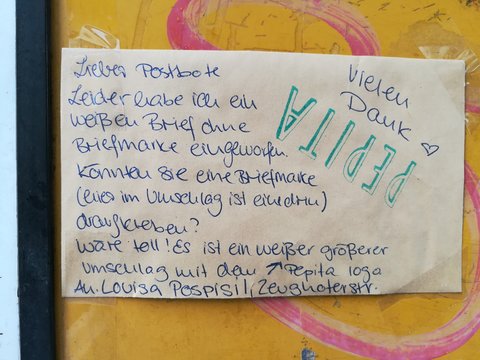 Lieber Postbote
Leider habe ich ein
weißen Brief ohne
Briefmarke eingeworfen.
Könnten Sie eine Briefmarke
(eies im Umschlag ist eine drin)
draufkleben?
Wäre toll! Es ist ein weißer größerer
Umschlag mit dem ↗ Pepita loga
An. Louisa Pospisil, Zeughoferstr.
Vielen
Dank ♡
PEPITA